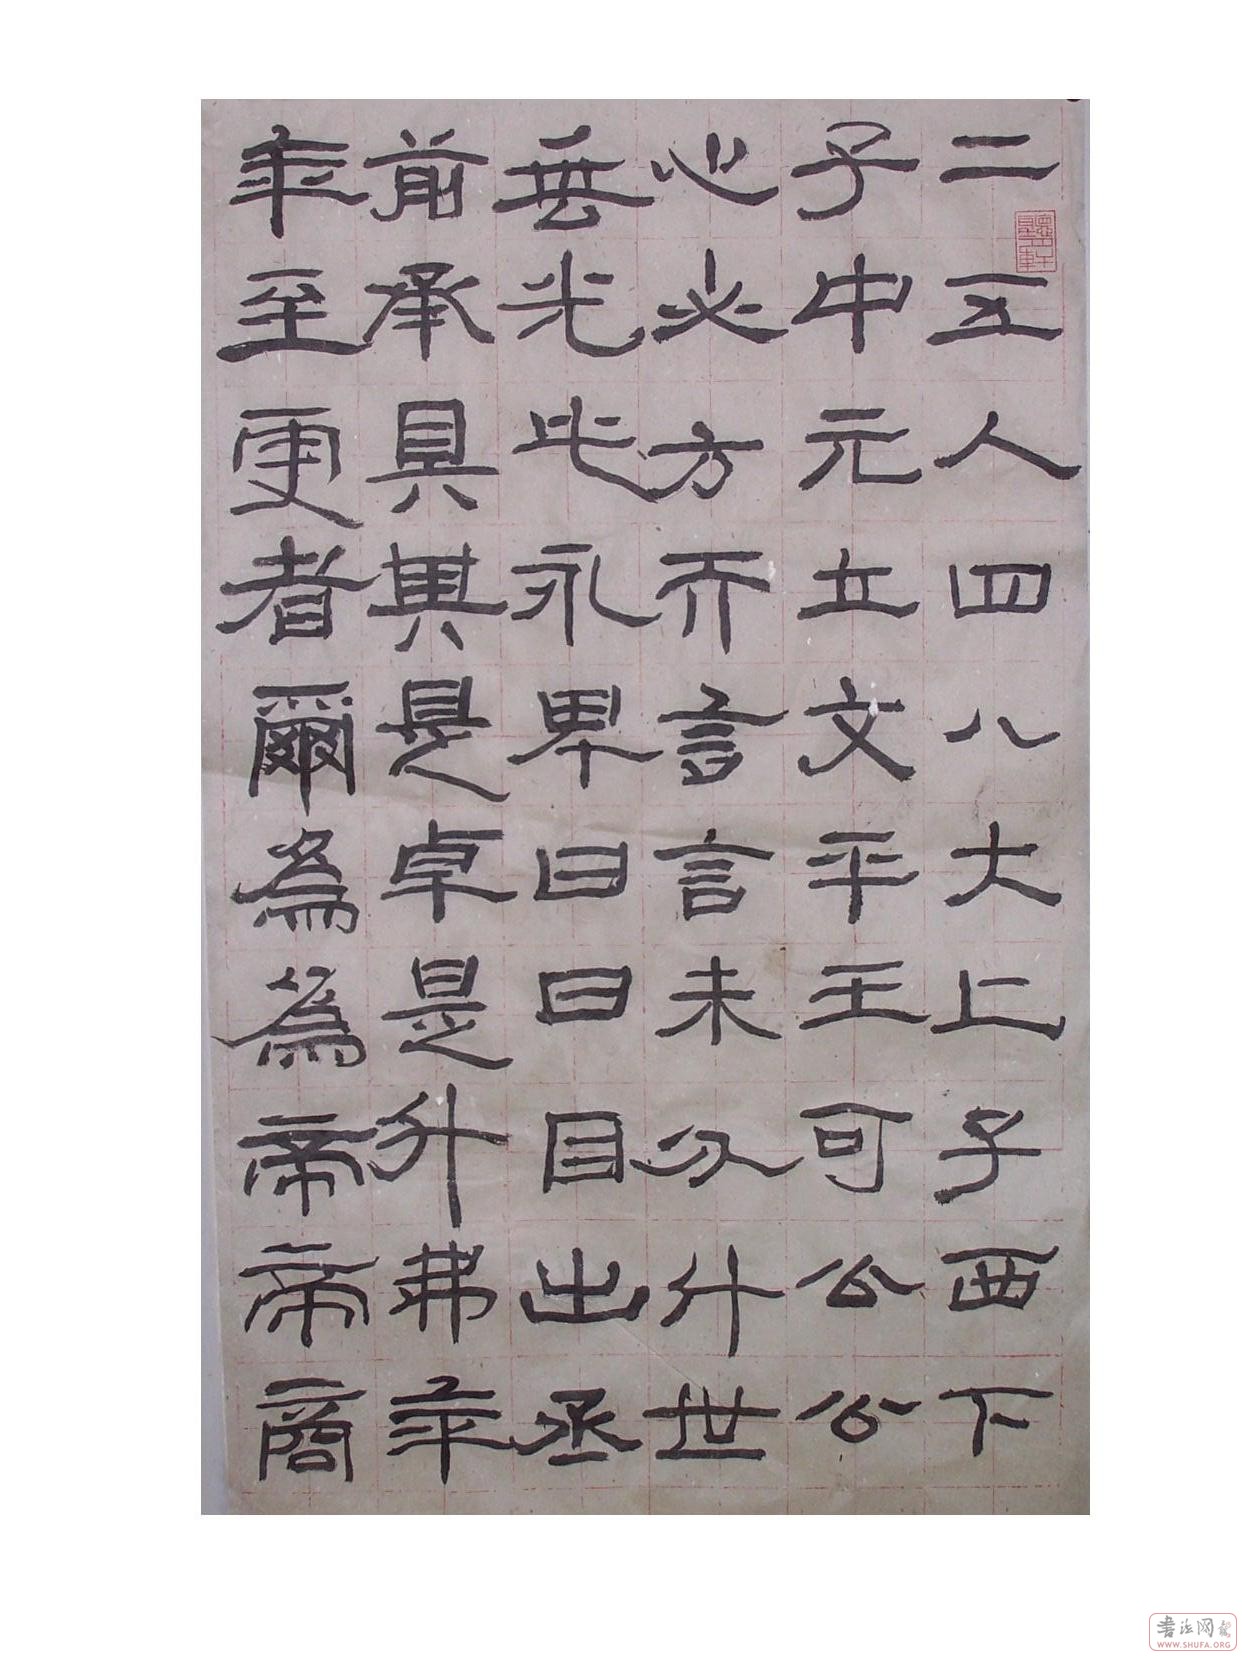 二五人四八大上子西下
子中元立文平王可公公
心必方不言言未分什世
垂光此永卑曰曰目出丞
前承具典是卓是升弗年
年至更者爾為為帝帝商
書法网
WWW.SHUFA.ORG